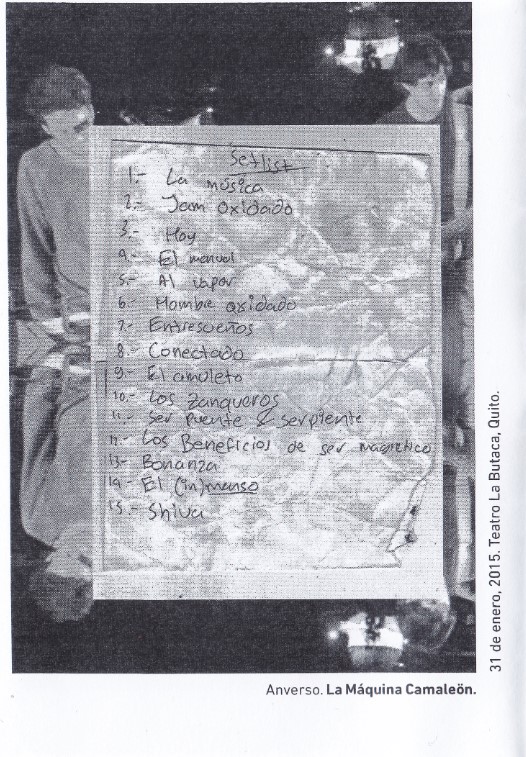 Setlist
1.- La música
2.- Jam oxidado
3.- Hoy
4.- El menual
5.- Al vapor
6.- Hombre oxidado
7.- Entresueños
8.- Conectado
9.- El amuleto
10.- Los Zanqueros
11.- Ser puente & serpiente
12.- Los Beneficios de ser magnético
13.- Bonanza
14.- El (in)menso
15.- Shiva
31 de enero, 2015. Teatro La Butaca, Quito.
Anverso. La Máquina Camaleön.